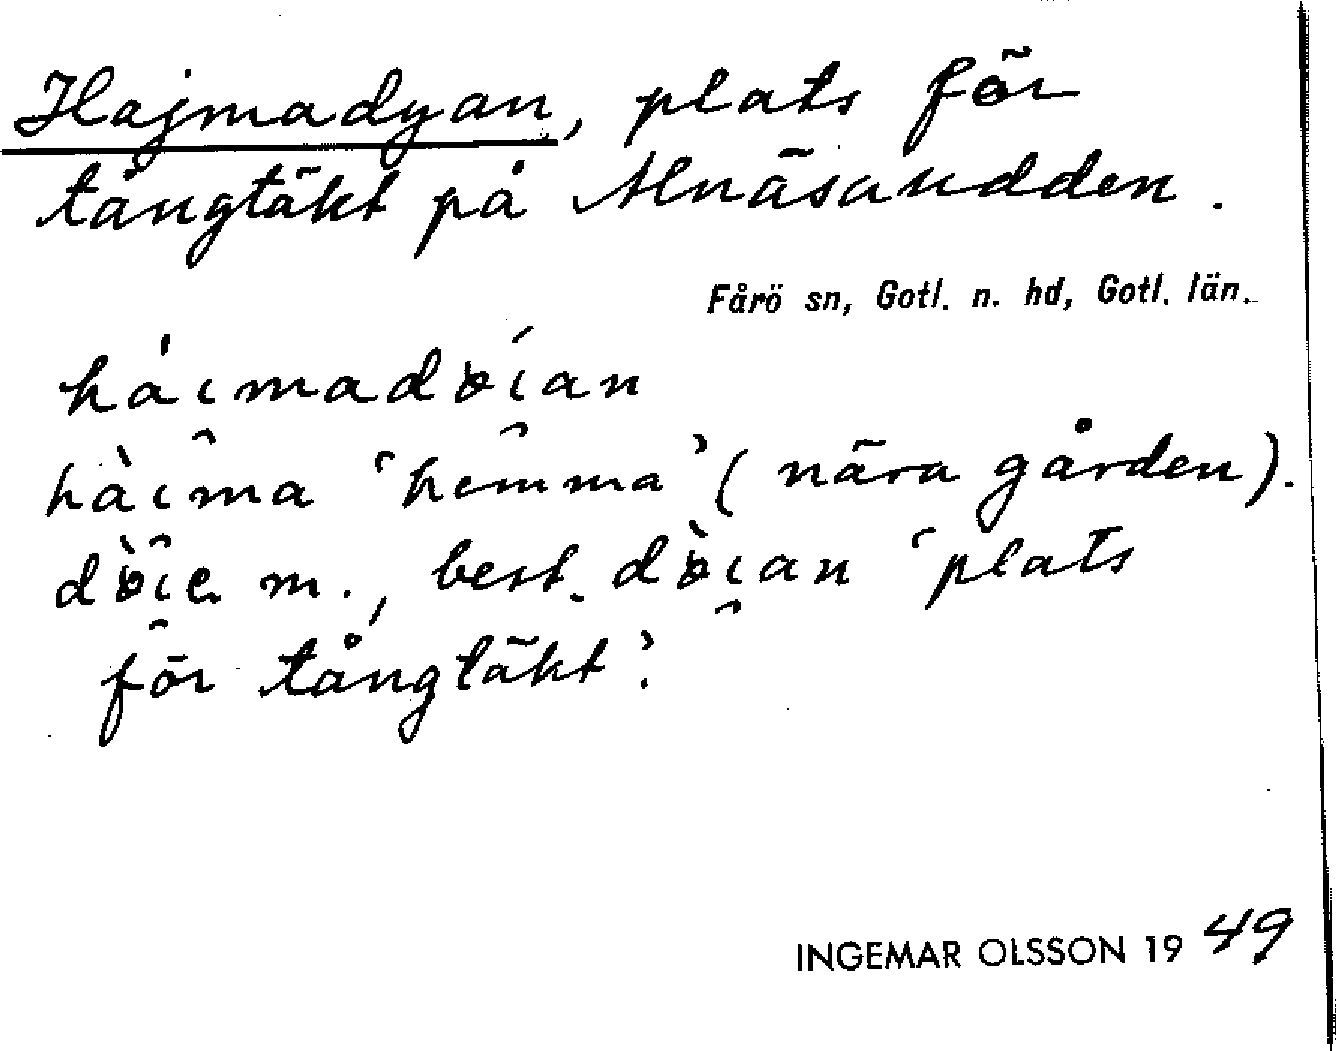 Hajmadyan, plats för
tångtäkt på Alnäsaudden.
Fårö sn, Gotl. n. hd, Gotl. län.
hàima 'hemma' (nära gården).
m., best. 'plats
för tångtäkt'.
INGEMAR OLSSON 1949